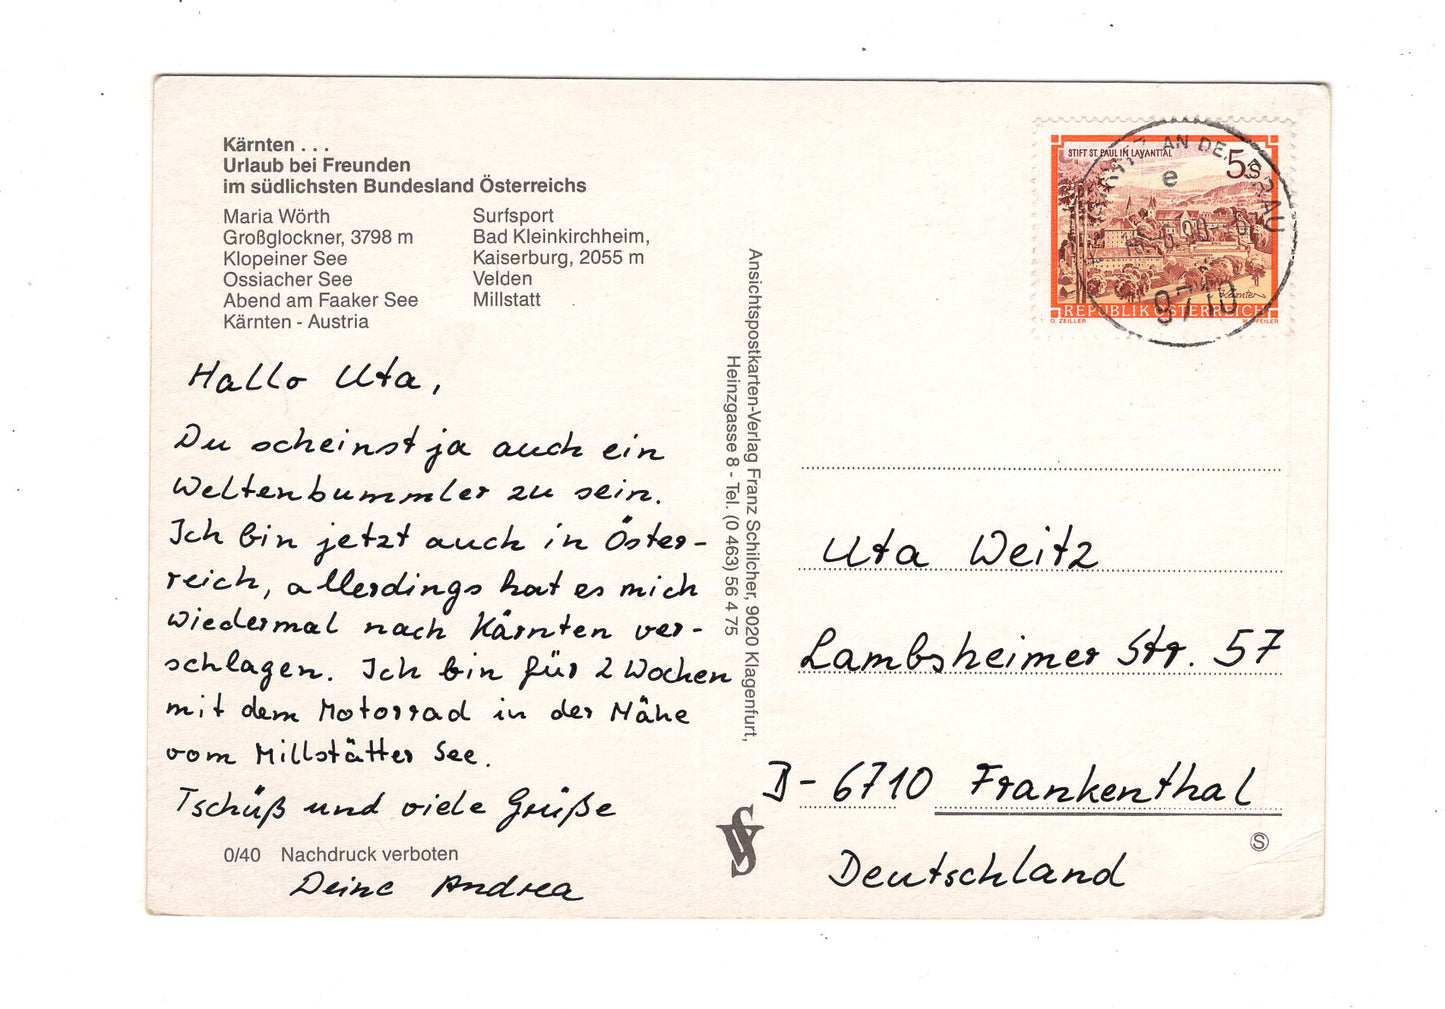 Kärnten . . .
Urlaub bei Freunden
im südlichsten Bundesland Österreichs
Maria Wörth
Großglockner, 3798 m
Klopeiner See
Ossiacher See
Abend am Faaker See
Kärnten - Austria
Surfsport
Bad Kleinkirchheim,
Kaiserburg, 2055 m
Velden
Millstatt
Hallo Uta,
Du scheinst ja auch ein
Weltenbummler zu sein.
Ich bin jetzt auch in Öster-
reich, allerdings hat es mich
wiedermal nach Kärnten ver-
schlagen. Ich bin für 2 Wochen
mit dem Motorrad in der Nähe
vom Millstätter See.
Tschüß und viele Grüße
0/40 Nachdruck verboten
Deine Andrea
Ansichtspostkarten-Verlag Franz Schilcher, 9020 Klagenfurt,
Heinzgasse 8 - Tel. (0 463) 56 4 75
STIFT ST. PAUL IM LAVANTTAL
5s
REPUBLIK ÖSTERREICH
O. ZEILLER
W. PFEILER
AN DER DRAU
e
9710
Uta Weitz
Lambsheimer Str. 57
D-6710 Frankenthal
Deutschland
S